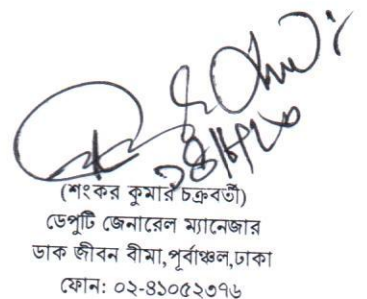 (শংকর কুমার চক্রবর্তী)
ডেপুটি জেনারেল ম্যানেজার
ডাক জীবন বীমা,পূর্বাঞ্চল,ঢাকা
ফোন: ০২-৪১০৫২৩৭৬